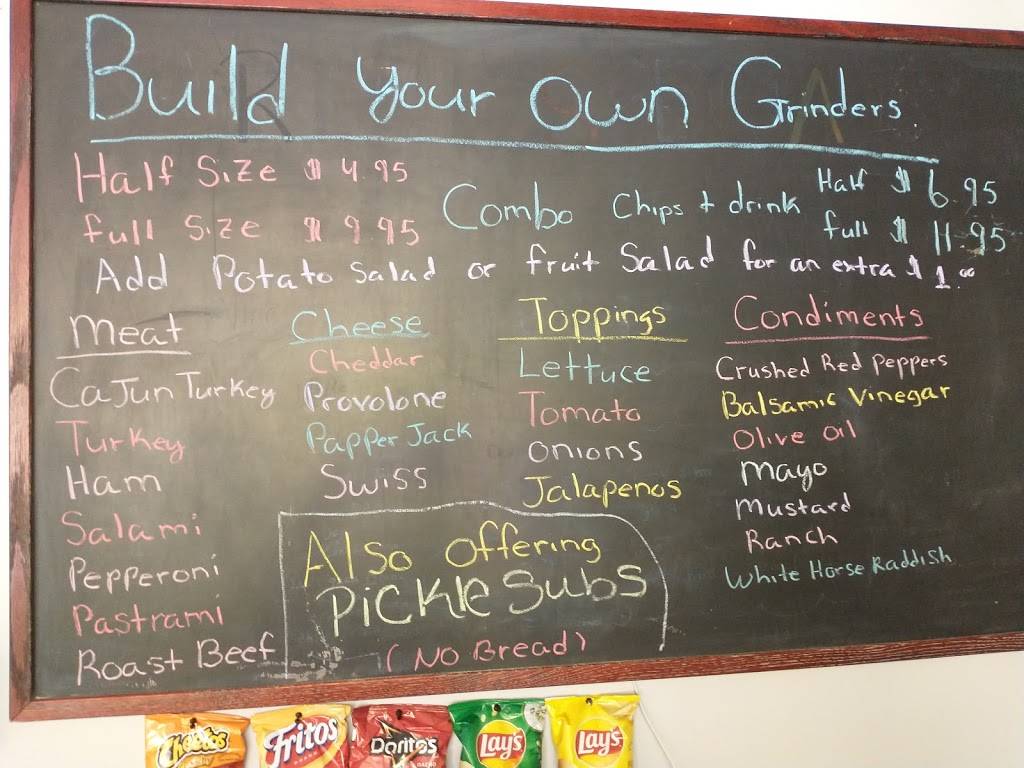 Build Your Own Grinders
Half Size $ 4.95
full Size $ 9.95
Combo Chips + drink
Half $ 6.95
full $ 11.95
Add Potato Salad or fruit Salad for an extra $ 1.00
Meat
CaJun Turkey
Turkey
Ham
Salami
Pepperoni
Pastrami
Roast Beef
Cheese
Cheddar
Provolone
Papper Jack
Swiss
Toppings
Lettuce
Tomato
Onions
Jalapenos
Condiments
Crushed Red Peppers
Balsamic Vinegar
Olive oil
Mayo
Mustard
Ranch
White Horse Raddish
Also offering
Pickle Subs
(No Bread)
Cheetos
Fritos
Doritos
NACHO
Lay's
Lay's